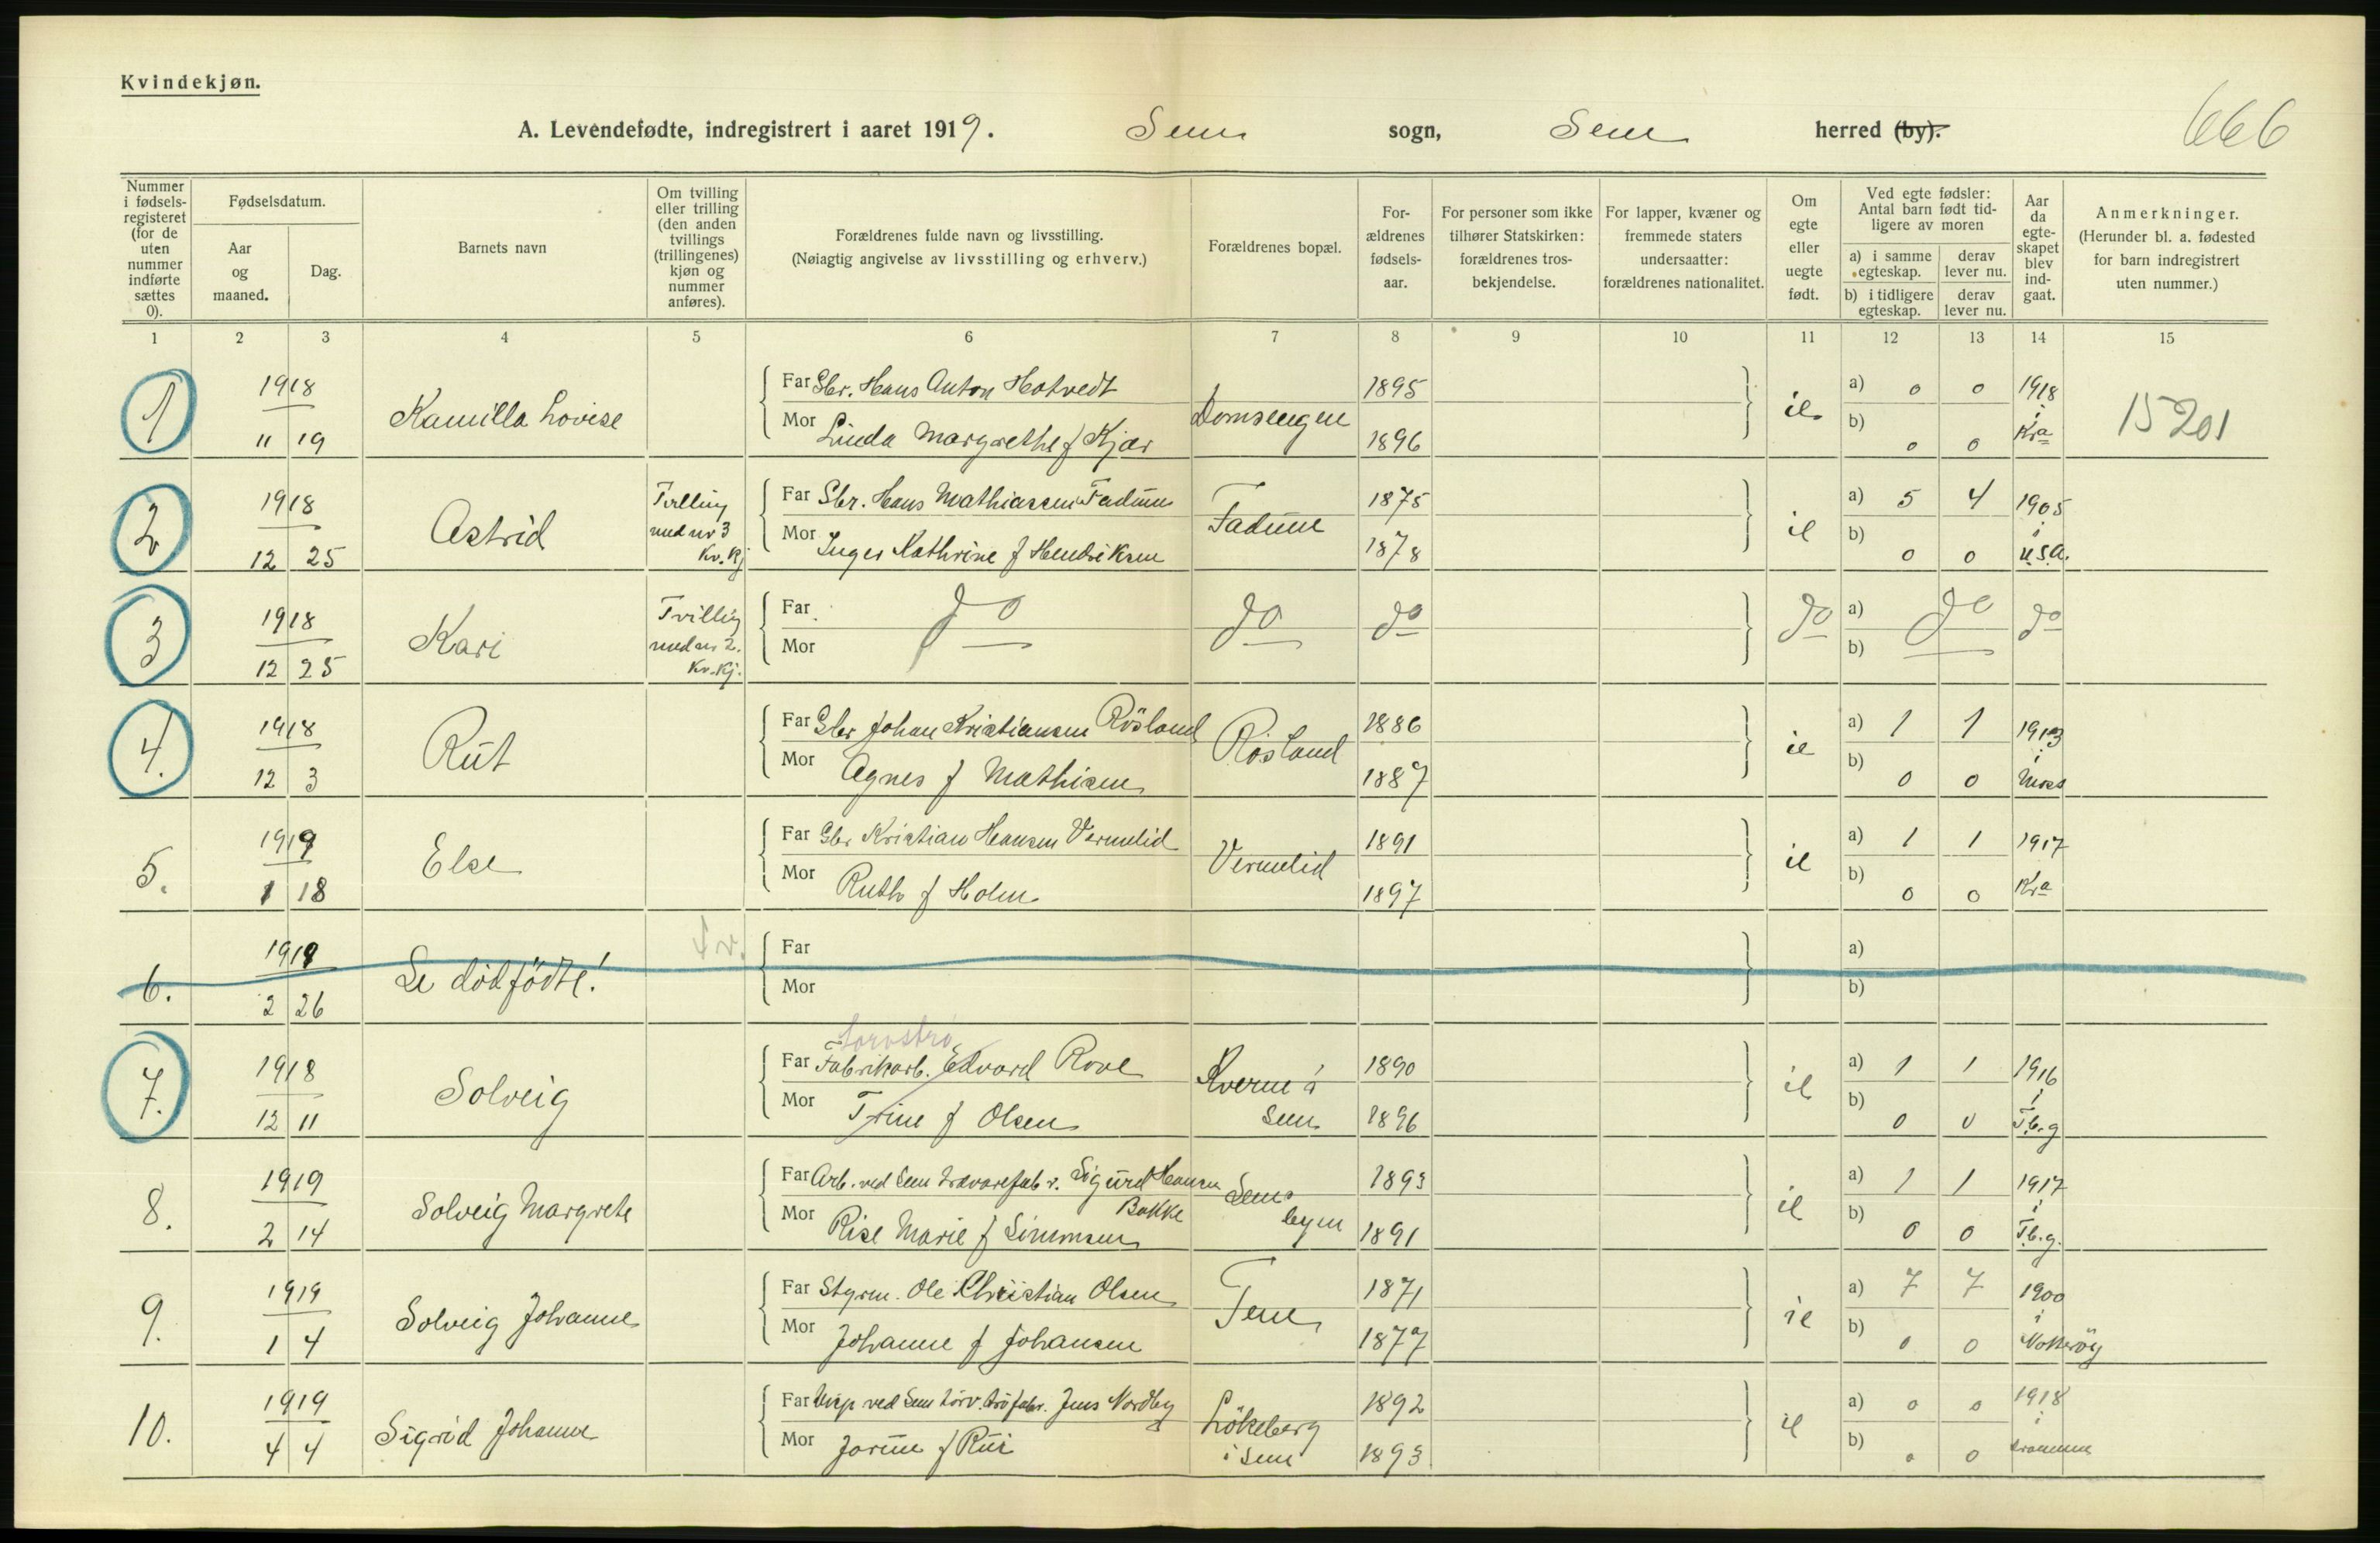 Kvindekjøn.
A. Levendefødte, indregistrert i aaret 1919. Sem sogn, Sem herred (by).
666
Nummer i fødsels-registeret (for de uten nummer indførte sættes 0).
Fødselsdatum.
Aar og maaned.
Dag.
Barnets navn
Om tvilling eller trilling (den anden tvillings (trillingenes) kjøn og nummer anføres).
Forældrenes fulde navn og livsstilling.
(Nøiagtig angivelse av livsstilling og erhverv.)
Forældrenes bopæl.
For-ældrenes fødsels-aar.
For personer som ikke tilhører Statskirken: forældrenes tros-bekjendelse.
For lapper, kvæner og fremmede staters undersaatter: forældrenes nationalitet.
Om egte eller uegte født.
Ved egte fødsler: Antal barn født tid-ligere av moren
a) i samme egteskap.
derav lever nu.
b) i tidligere egteskap.
derav lever nu.
Aar da egte-skapet blev ind-gaat.
Anmerkninger.
(Herunder bl. a. fødested for barn indregistrert uten nummer.)
1 2 3 4 5 6 7 8 9 10 11 12 13 14 15
1 1918 Far Gbr. Hans Anton Hotvedt 1895 a) 0 0 1918
Kamilla Lovise Domsengen i
11 19 Mor Linda Margrethe f Kjær 1896 b) 0 0 Kra 15201
2 1918 Tvilling Far Gbr. Hans Mathiassen Fadum 1875 a) 5 4 1905
Astrid med nr 3 Fadum i
12 25 Kv. Kj Mor Inger Kathrine f Hendriksen 1878 b) 0 0 U.S.A.
3 1918 Tvilling Far do do do do a) do do
Kari med nr 2.
12 25 Kv. Kj. Mor b)
4. 1918 Far Gbr Johan Kristiansen Røsland 1886 a) 1 1 1913
Rut Røsland i
12 3 Mor Agnes f Mathisen 1887 b) 0 0 Moss
5. 1919 Far Gbr Kristian Hansen Vermelid 1891 a) 1 1 1917
Else Vermelid
1 18 Mor Ruth f Holm 1897 b) 0 0 Kra
6. 1919 Far a)
Se dødfödte!
2 26 Mor b)
7. 1918 Far Fabrikarb. Edvard Rove 1890 a) 1 1 1916
Solveig i
12 11 Mor Trine f Olsen Sem 1896 b) 0 0 Tb.g
8. 1919 Far Arb. ved Sem trævarefabr. Sigurd Hansen 1893 a) 1 1 1917
Solveig Margrete Bakke Sems i
2 14 Mor Rise Marie f Simonsen byen 1891 b) 0 0 Tb.g.
9. 1919 Far Styrm. Ole Christian Olsen 1871 a) 7 7 1900
Solveig Johanne i
1 4 Mor Johanne f Johansen 1877 b) 0 0 Nøtterøy
10. 1919 Far ved Sem törvströfabr. Jens Nordby 1892 a) 0 0 1918
Sigrid Johanne Lökeberg i
4 4 Mor Jorun f Rui i Sem 1893 b) 0 0